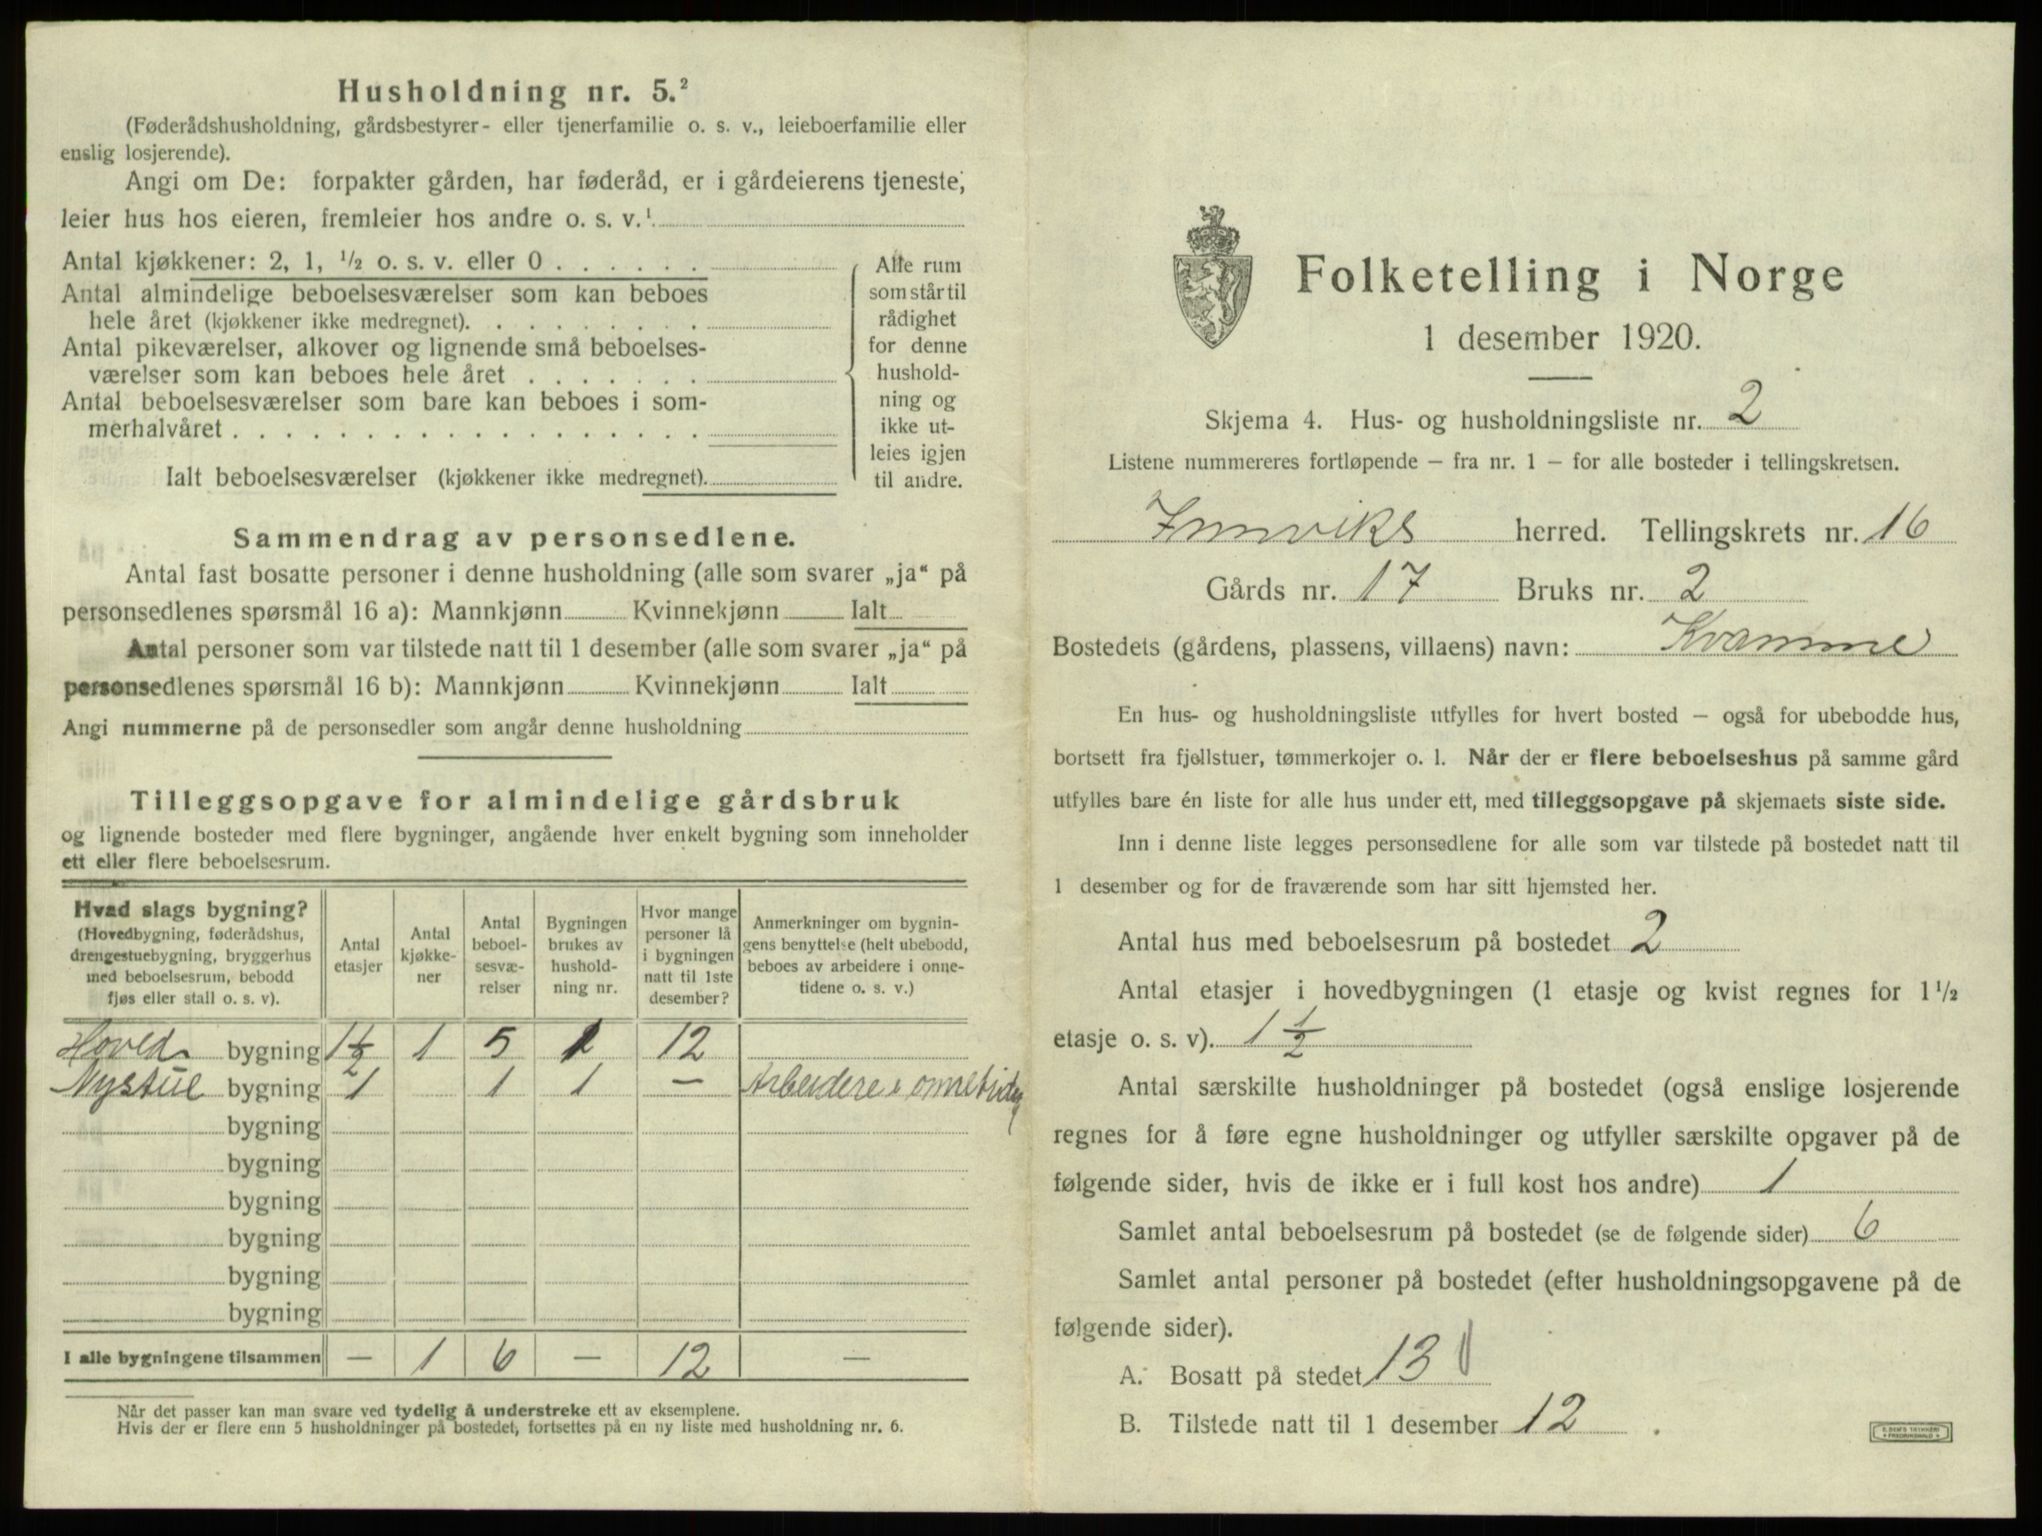 Husholdning nr. 5.²
(Føderådshusholdning, gårdsbestyrer- eller tjenerfamilie o. s. v., leieboerfamilie eller
enslig losjerende).
Angi om De: forpakter gården, har føderåd, er i gårdeierens tjeneste,
leier hus hos eieren, fremleier hos andre o. s. v.¹
Antal kjøkkener: 2, 1, ½ o. s. v. eller 0 . . . . . .
Antal almindelige beboelsesværelser som kan beboes
hele året (kjøkkener ikke medregnet). . . . . . . . .
Antal pikeværelser, alkover og lignende små beboelses-
værelser som kan beboes hele året . . . . . . .
Antal beboelsesværelser som bare kan beboes i som-
merhalvåret . . . . . . . . . . . . . . . . . .
Ialt beboelsesværelser (kjøkkener ikke medregnet).
Alle rum
som står til
rådighet
for denne
hushold-
ning og
ikke ut-
leies igjen
til andre.
Sammendrag av personsedlene.
Antal fast bosatte personer i denne husholdning (alle som svarer „ja“ på
personsedlenes spørsmål 16 a): Mannkjønn Kvinnekjønn Ialt
Antal personer som var tilstede natt til 1 desember (alle som svarer „ja“ på
personsedlenes spørsmål 16 b): Mannkjønn Kvinnekjønn Ialt
Angi nummerne på de personsedler som angår denne husholdning
Tilleggsopgave for almindelige gårdsbruk
og lignende bosteder med flere bygninger, angående hver enkelt bygning som inneholder
ett eller flere beboelsesrum.
Hvad slags bygning?
(Hovedbygning, føderådshus,
drengestuebygning, bryggerhus
med beboelsesrum, bebodd
fjøs eller stall o. s. v).
Antal
etasjer
Antal
kjøkke-
ner
Antal
beboel-
sesvæ-
relser
Bygningen
brukes av
hushold-
ning nr.
Hvor mange
personer lå
i bygningen
natt til 1ste
desember?
Anmerkninger om bygnin-
gens benyttelse (helt ubebodd,
beboes av arbeidere i onne-
tidene o. s. v.)
Hoved bygning 1½ 1 5 1 12
Nystue bygning 1 1 1 – Arbeidere i onnetiden
bygning
bygning
bygning
bygning
bygning
bygning
I alle bygningene tilsammen – 1 6 – 12 –
Når det passer kan man svare ved tydelig å understreke ett av eksemplene.
Hvis der er flere enn 5 husholdninger på bostedet, fortsettes på en ny liste med husholdning nr. 6.
Folketelling i Norge
1 desember 1920.
Skjema 4. Hus- og husholdningsliste nr. 2
Listene nummereres fortløpende – fra nr. 1 – for alle bosteder i tellingskretsen.
Innviks herred. Tellingskrets nr. 16
Gårds nr. 17 Bruks nr. 2
Bostedets (gårdens, plassens, villaens) navn: Kvamme
En hus- og husholdningsliste utfylles for hvert bosted – også for ubebodde hus,
bortsett fra fjellstuer, tømmerkojer o. l. Når der er flere beboelseshus på samme gård
utfylles bare én liste for alle hus under ett, med tilleggsopgave på skjemaets siste side.
Inn i denne liste legges personsedlene for alle som var tilstede på bostedet natt til
1 desember og for de fraværende som har sitt hjemsted her.
Antal hus med beboelsesrum på bostedet 2
Antal etasjer i hovedbygningen (1 etasje og kvist regnes for 1½
etasje o. s. v). 1½
Antal særskilte husholdninger på bostedet (også enslige losjerende
regnes for å føre egne husholdninger og utfyller særskilte opgaver på de
følgende sider, hvis de ikke er i full kost hos andre) 1
Samlet antal beboelsesrum på bostedet (se de følgende sider) 6
Samlet antal personer på bostedet (efter husholdningsopgavene på de
følgende sider).
A. Bosatt på stedet 13
B. Tilstede natt til 1 desember 12